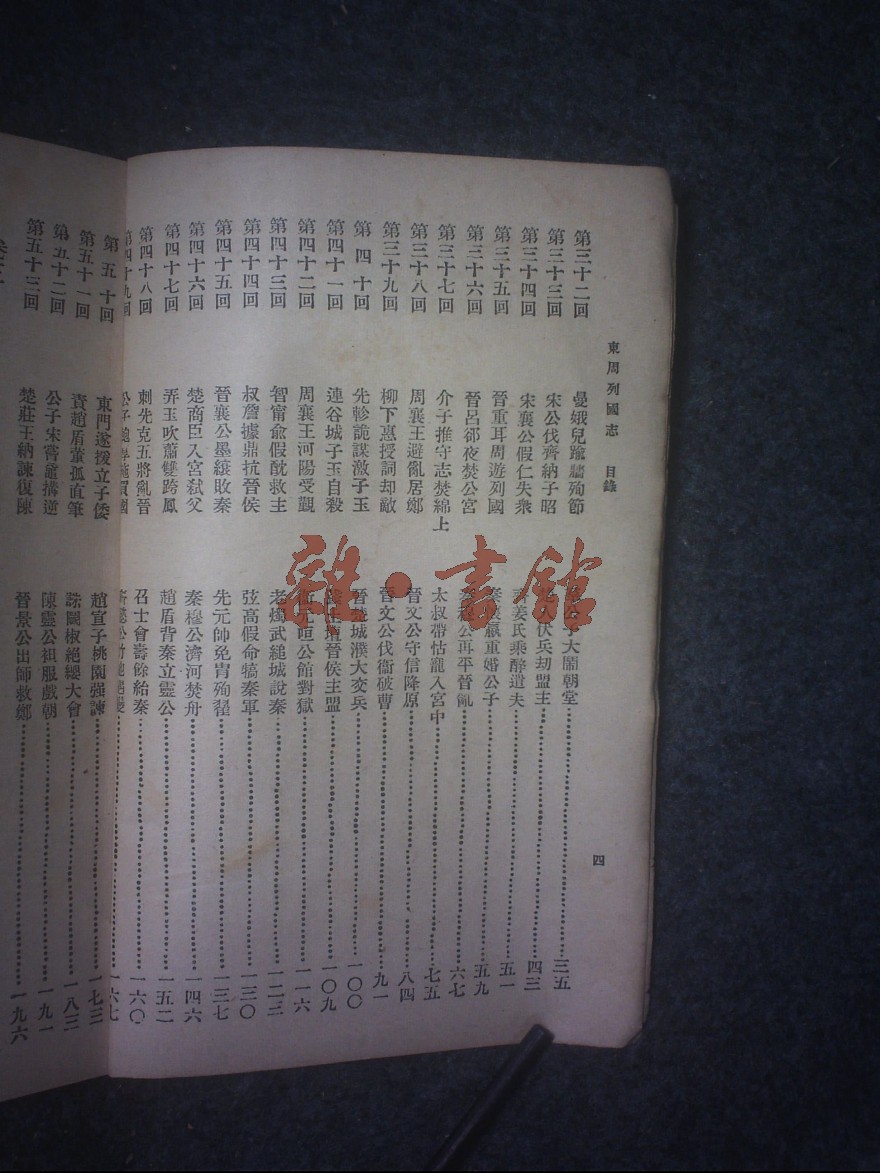 東周列國志 目錄
四
第三十二回 晏娥兒踰牆殉節 公子大鬧朝堂 三五
第三十三回 宋公伐齊納子昭 伏兵刧盟主 四三
第三十四回 宋襄公假仁失衆 姜氏乘醉遣夫 五一
第三十五回 晉重耳周遊列國 懷嬴重婚公子 五九
第三十六回 晉呂郤夜焚公宮 公再平晉亂 六七
第三十七回 介子推守志焚綿上 太叔帶怙寵入宮中 七五
第三十八回 周襄王避亂居鄭 晉文公守信降原 八四
第三十九回 柳下惠授詞却敵 晉文公伐衞破曹 九一
第四十回 先軫詭謀激子玉 晉楚城濮大交兵 一〇〇
第四十一回 連谷城子玉自殺 晉侯主盟 一〇九
第四十二回 周襄王河陽受覲 衞元咺公館對獄 一一六
第四十三回 智甯俞假酖救主 老燭武縋城說秦 一二三
第四十四回 叔詹據鼎抗晉侯 弦高假命犒秦軍 一三〇
第四十五回 晉襄公墨縗敗秦 先元帥免胄殉翟 一三七
第四十六回 楚商臣入宮弑父 秦穆公濟河焚舟 一四六
第四十七回 弄玉吹簫雙跨鳳 趙盾背秦立靈公 一五二
第四十八回 刺先克五將亂晉 召士會壽餘紿秦 一六〇
第四十九回 公子 買國 一六七
第五十回 東門遂援立子倭 趙宣子桃園强諫 一七三
第五十一回 責趙盾董狐直筆 誅鬬椒絕纓大會 一八三
第五十二回 公子宋嘗黿搆逆 陳靈公衵服戲朝 一九一
第五十三回 楚莊王納諫復陳 晉景公出師救鄭 一九六
雜·書館